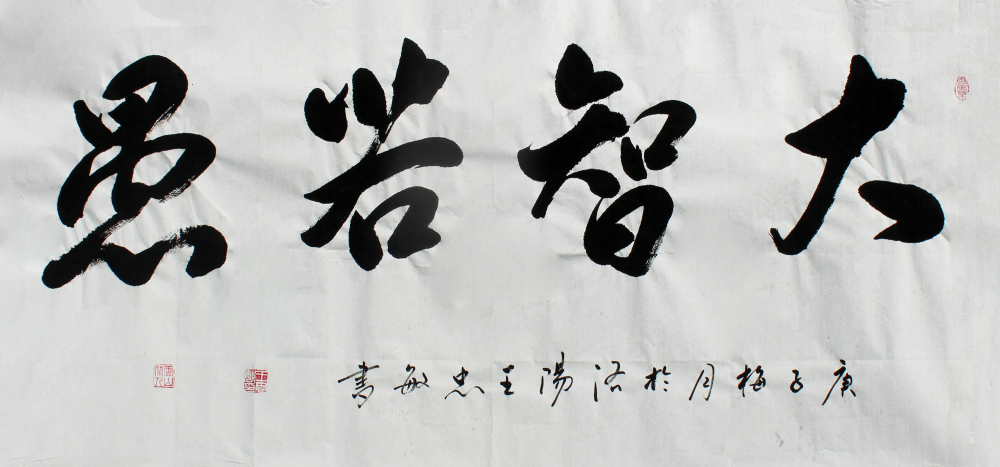 大智若愚
庚子梅月於洛陽王忠敏書